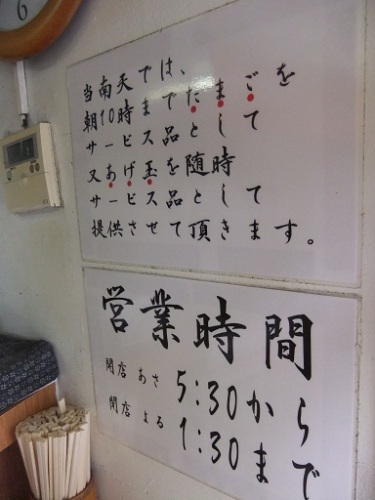 6
当南天では、たまごを
朝10時までだまし
サービス品として
又あげ玉を随時
サービス品として
提供させて頂きます。
営業時間
開店 あさ 5:30から
閉店 よる 1:30まで